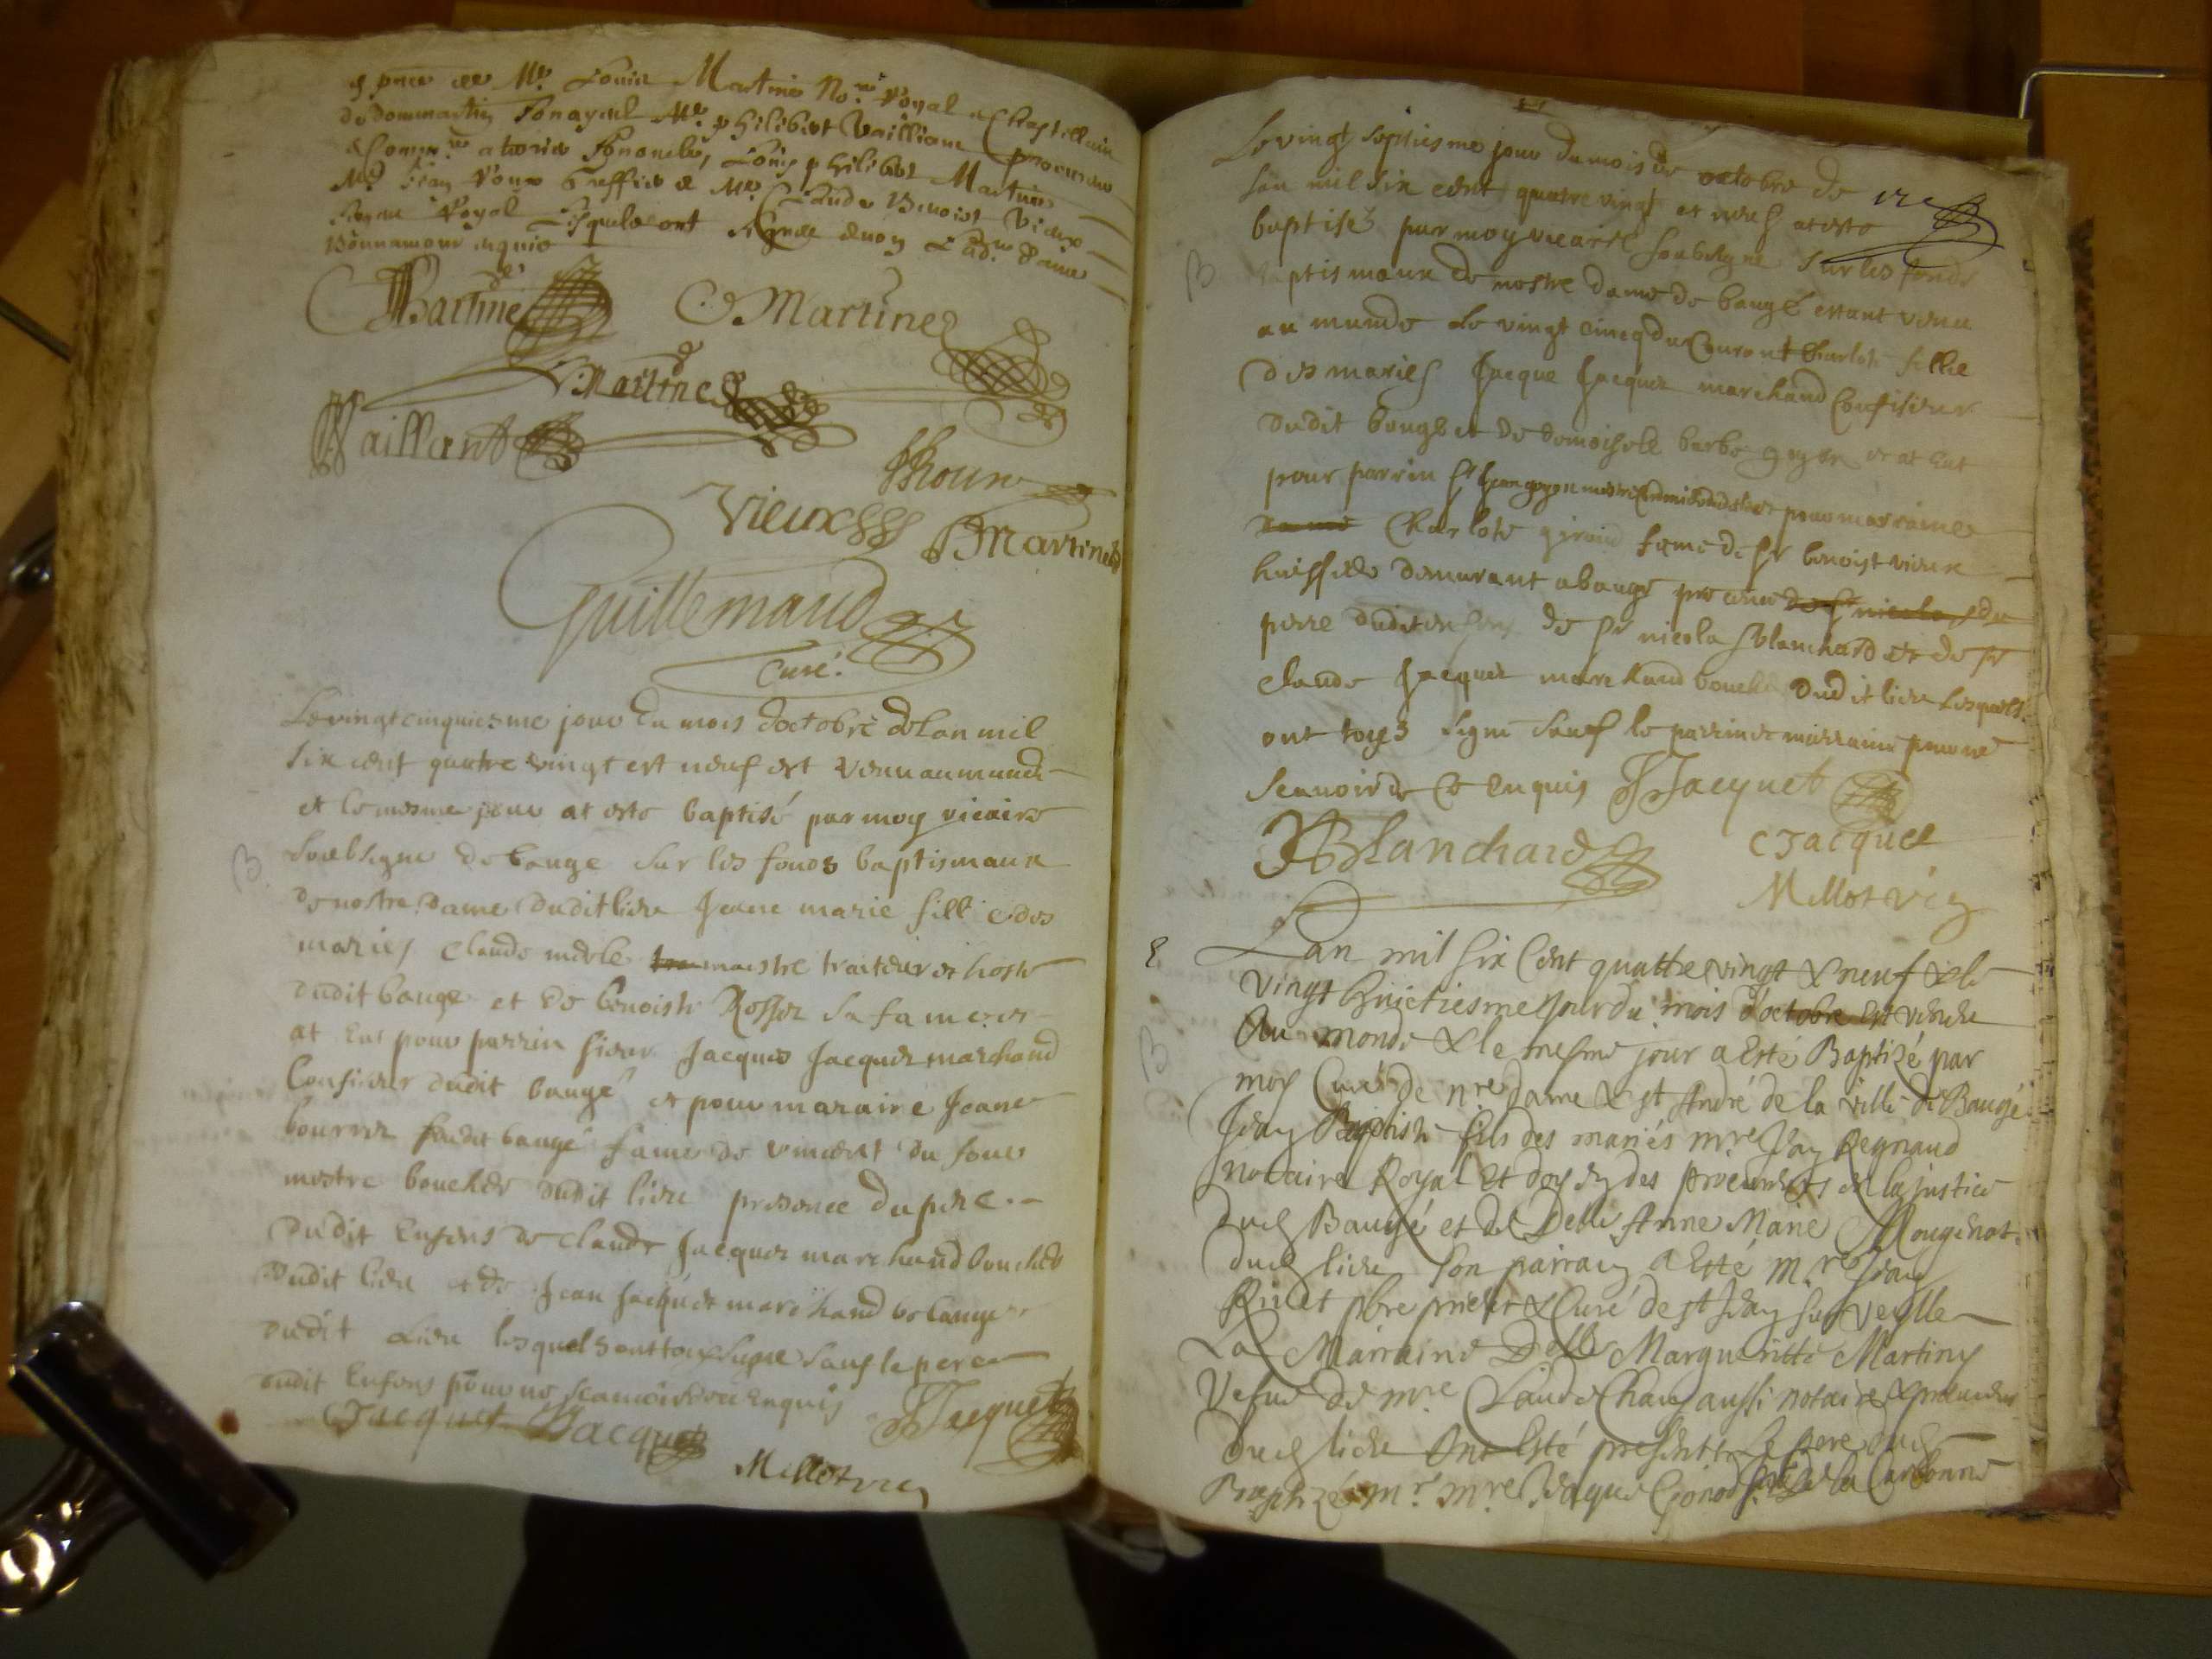 de Me. Louis Martine Nore. Royal & Chastellain
de dommartin honayent Me. philibert Vailliant procureur
Louis philibert Martine
Me. Jean Roux greffier & Me. Claude Benoist Vieux
Royal Lesquels ont signé &non Lad. dame
Bonnamour enquis
Martine
Martine
Martine
Vaillant
JRoux
Vieux
Martine
Guillemaud
Curé.
Le vingt cinquiesme jour du mois doctobre de Lan mil
six cent quatre vingt est neuf est venu au munde
et le mesme jour at este baptisé par moy vicaire
soubsigne de bauge sur les fonds baptismaux
de nostre dame dudit lieu Jeane marie fille des
mariés Claude merle maistre traiteur et hoste
dudit bauge et de benoiste Rosser sa fame et
at Eut pour parrin sieur Jacques Jacquet marchand
Confiseur dudit baugé et pour maraine Jeane
bourrer dudit baugé fame de vincent du four
mestre boucher dudit lieu presence du pere
dudit Enfens de claude Jacquet marchand boucher
dudit lieu et de Jean Jacquet marchand bolanger
dudit Lieu lesquels ont tous signe sauf le pere
dudit Enfens pour ne scavoir de ce Enquis
Jacquet Jacquet JJacquet
Millot vic
Le vingt septiesme jour du mois de octobre de
lan mil six cent quatre vingt et neuf at este
baptisé par moy vicaire soubsigne sur les fonds
baptismaux de nostre dame de baugé estant venu
au munde le vingt cinq du Courant Charlote fillie
des mariés Jacque Jacquet marchand Confiseur
dudit bauge et de demoiselle barbe goyon et at Eut
pour parrin sr Jean goyon et pour marraine
Charlote giraud fame de sr benoist vieux
huissier demurant a bauge presence du
pere dudit enfens de sr nicola blanchard et de sr
claude Jacquet marchand boucher dudit lieu Lesquels
ont tous signe sauf le parrin et marraine pour ne
scavoir de ce Enquis JJacquet
Blanchard
CJacquet
Millot vic
Lan mil six Cent quattre vingt & neuf & le
Vingt huictiesme jour du mois doctobre Est venu
Au monde & le mesme jour a Esté Baptizé par
moy Curé de nre dame & st André de la ville de Baugé
Jean Baptiste fils des mariés mre Jean Regnaud
notaire Royal Et doyen des procureurs en la justice
dud Baugé et de Delle Anne Marie Mougenot
dud lieu Son parrain a Esté mre Jean
pbre prieur & Curé de st Jean sur veylle
La Marraine Delle Margueritte Martine
Vefve de mre Claude Chan aussi notaire & procureur
dud lieu Ont Esté presents Le pere dud
Baptizé mr mre Jaque de la Carbonne